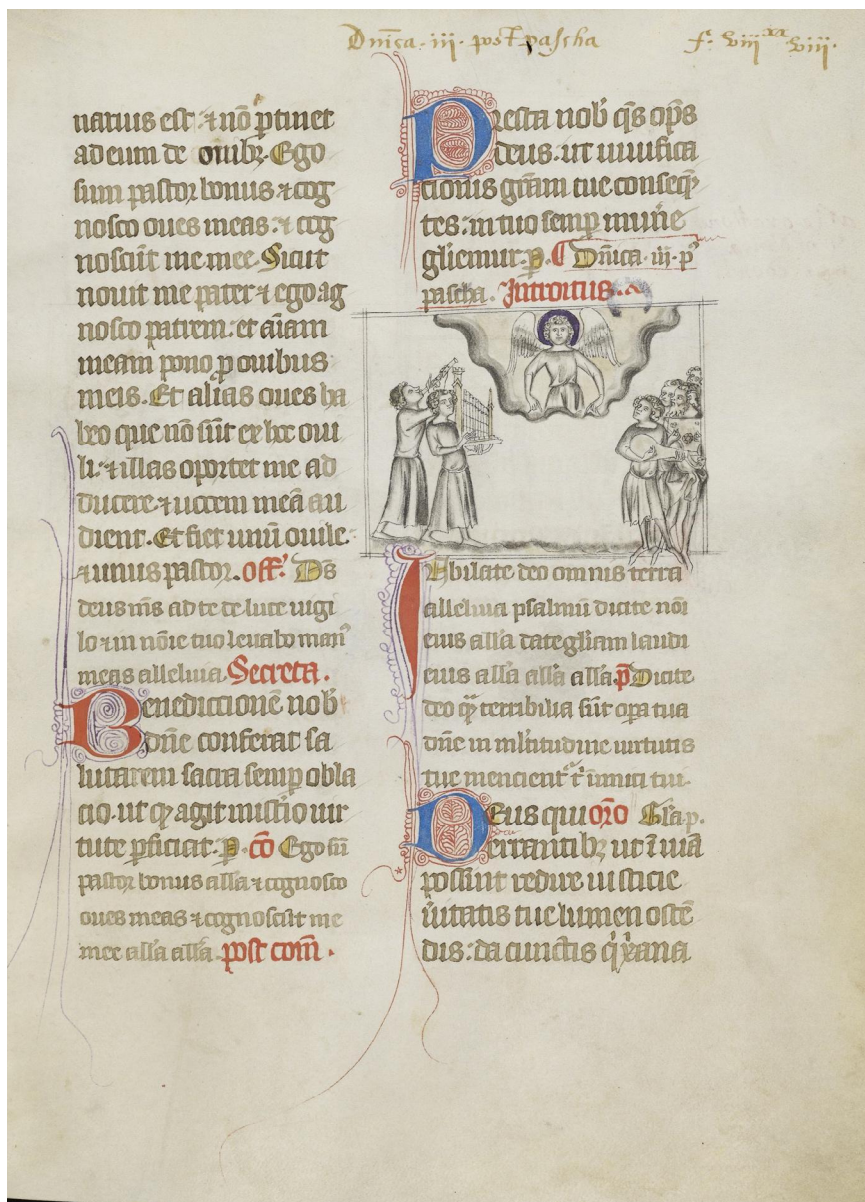 Dnīca · iii · post pascha
f. viii xx viii.
narius est · ⁊ nō ꝑtinet
ad eum de ouibꝫ. Ego
sum pastor bonus ⁊ cog
nosco oues meas · ⁊ cog
noscūt me mee. Sicut
nouit me pater ⁊ ego ag
nosco patrem · et aīam
meam pono ꝓ ouibus
meis. Et alias oues ha
beo que nō sūt ex hoc oui
li · ⁊ illas oportet me ad
ducere ⁊ uocem meā au
dient. Et fiet unū ouile ·
⁊ unus pastor. off̄. Ds̄
deus ms̄ ad te de luce uigi
lo ⁊ in nōie tuo leuabo man⁹
meas alleluia. Secreta.
Benedictionē nob̄
dn̄e conferat sa
lutarem sacra semꝑ obla
cio · ut ꝙ agit misterio uir
tute ꝑficiat. P. cō Ego sū
pastor bonus alla ⁊ cognosco
oues meas ⁊ cognoscūt me
mee alla alla. post com̄.
Presta nob̄ qs̄ op̄s
deus · ut uiuifica
cionis gr̄am tue conseqn̄
tes · in tuo semꝑ mune
gl̄iemur. P. ¶ Dnīca · iii · p⁹
pascha. Introitus.
Iubilate deo omnis terra
alleluia psalmū dicite nōi
eius all̄a date gl̄iam laudi
eius all̄a all̄a all̄a p̄ Dicite
deo q̄ terribilia sūt opa tua
dn̄e in ml̄titudine uirtutis
tue mencient t̄ inimici tui.
Deus qui oro Gl̄a p.
errantibꝫ ut ī uiā
possint redire iusticie
ūitatis tue lumen ostē
dis : da cunctis q̄ xana